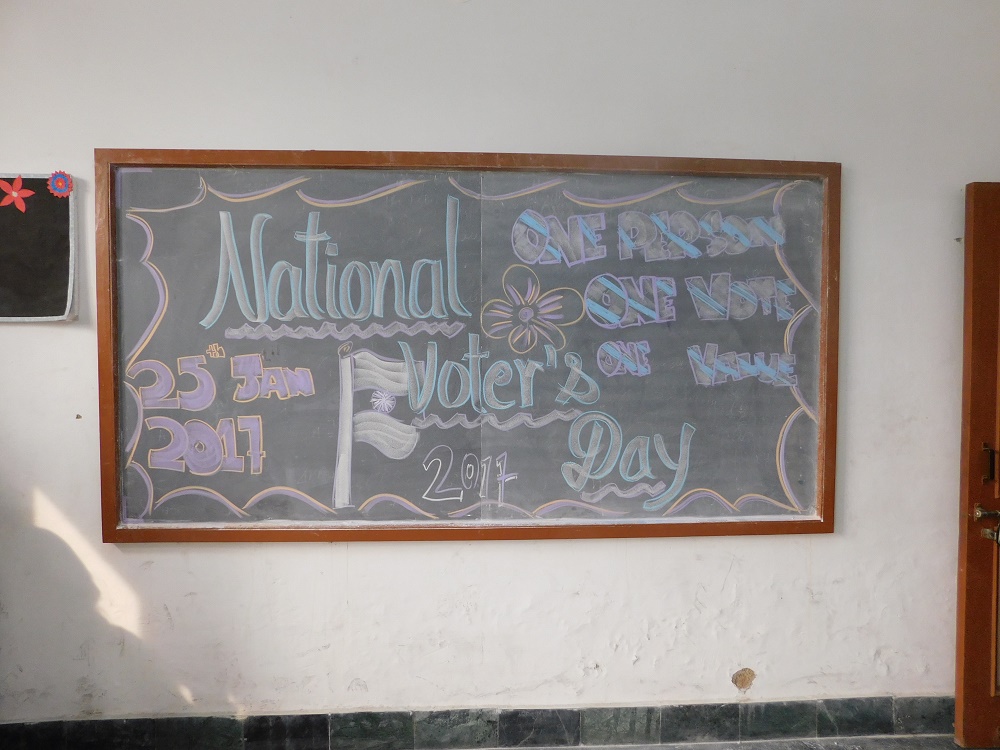 National
Voter's
Day
2017
25th JAN
2017
ONE PERSON
ONE VOTE
ONE VALUE